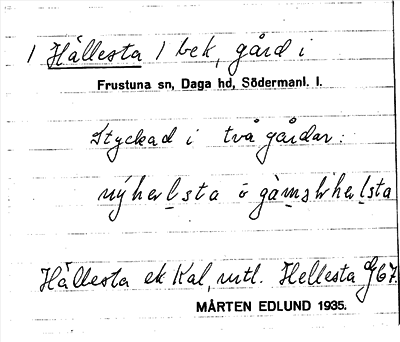 1 Hållesta 1 bek, gård i
Frustuna sn, Daga hd, Södermanl. l.
Styckad i två gårdar:
nýhelsta o gàmshelsta
Hållesta ek Kal, mtl. Hellesta dJ 67.
MÅRTEN EDLUND 1935.